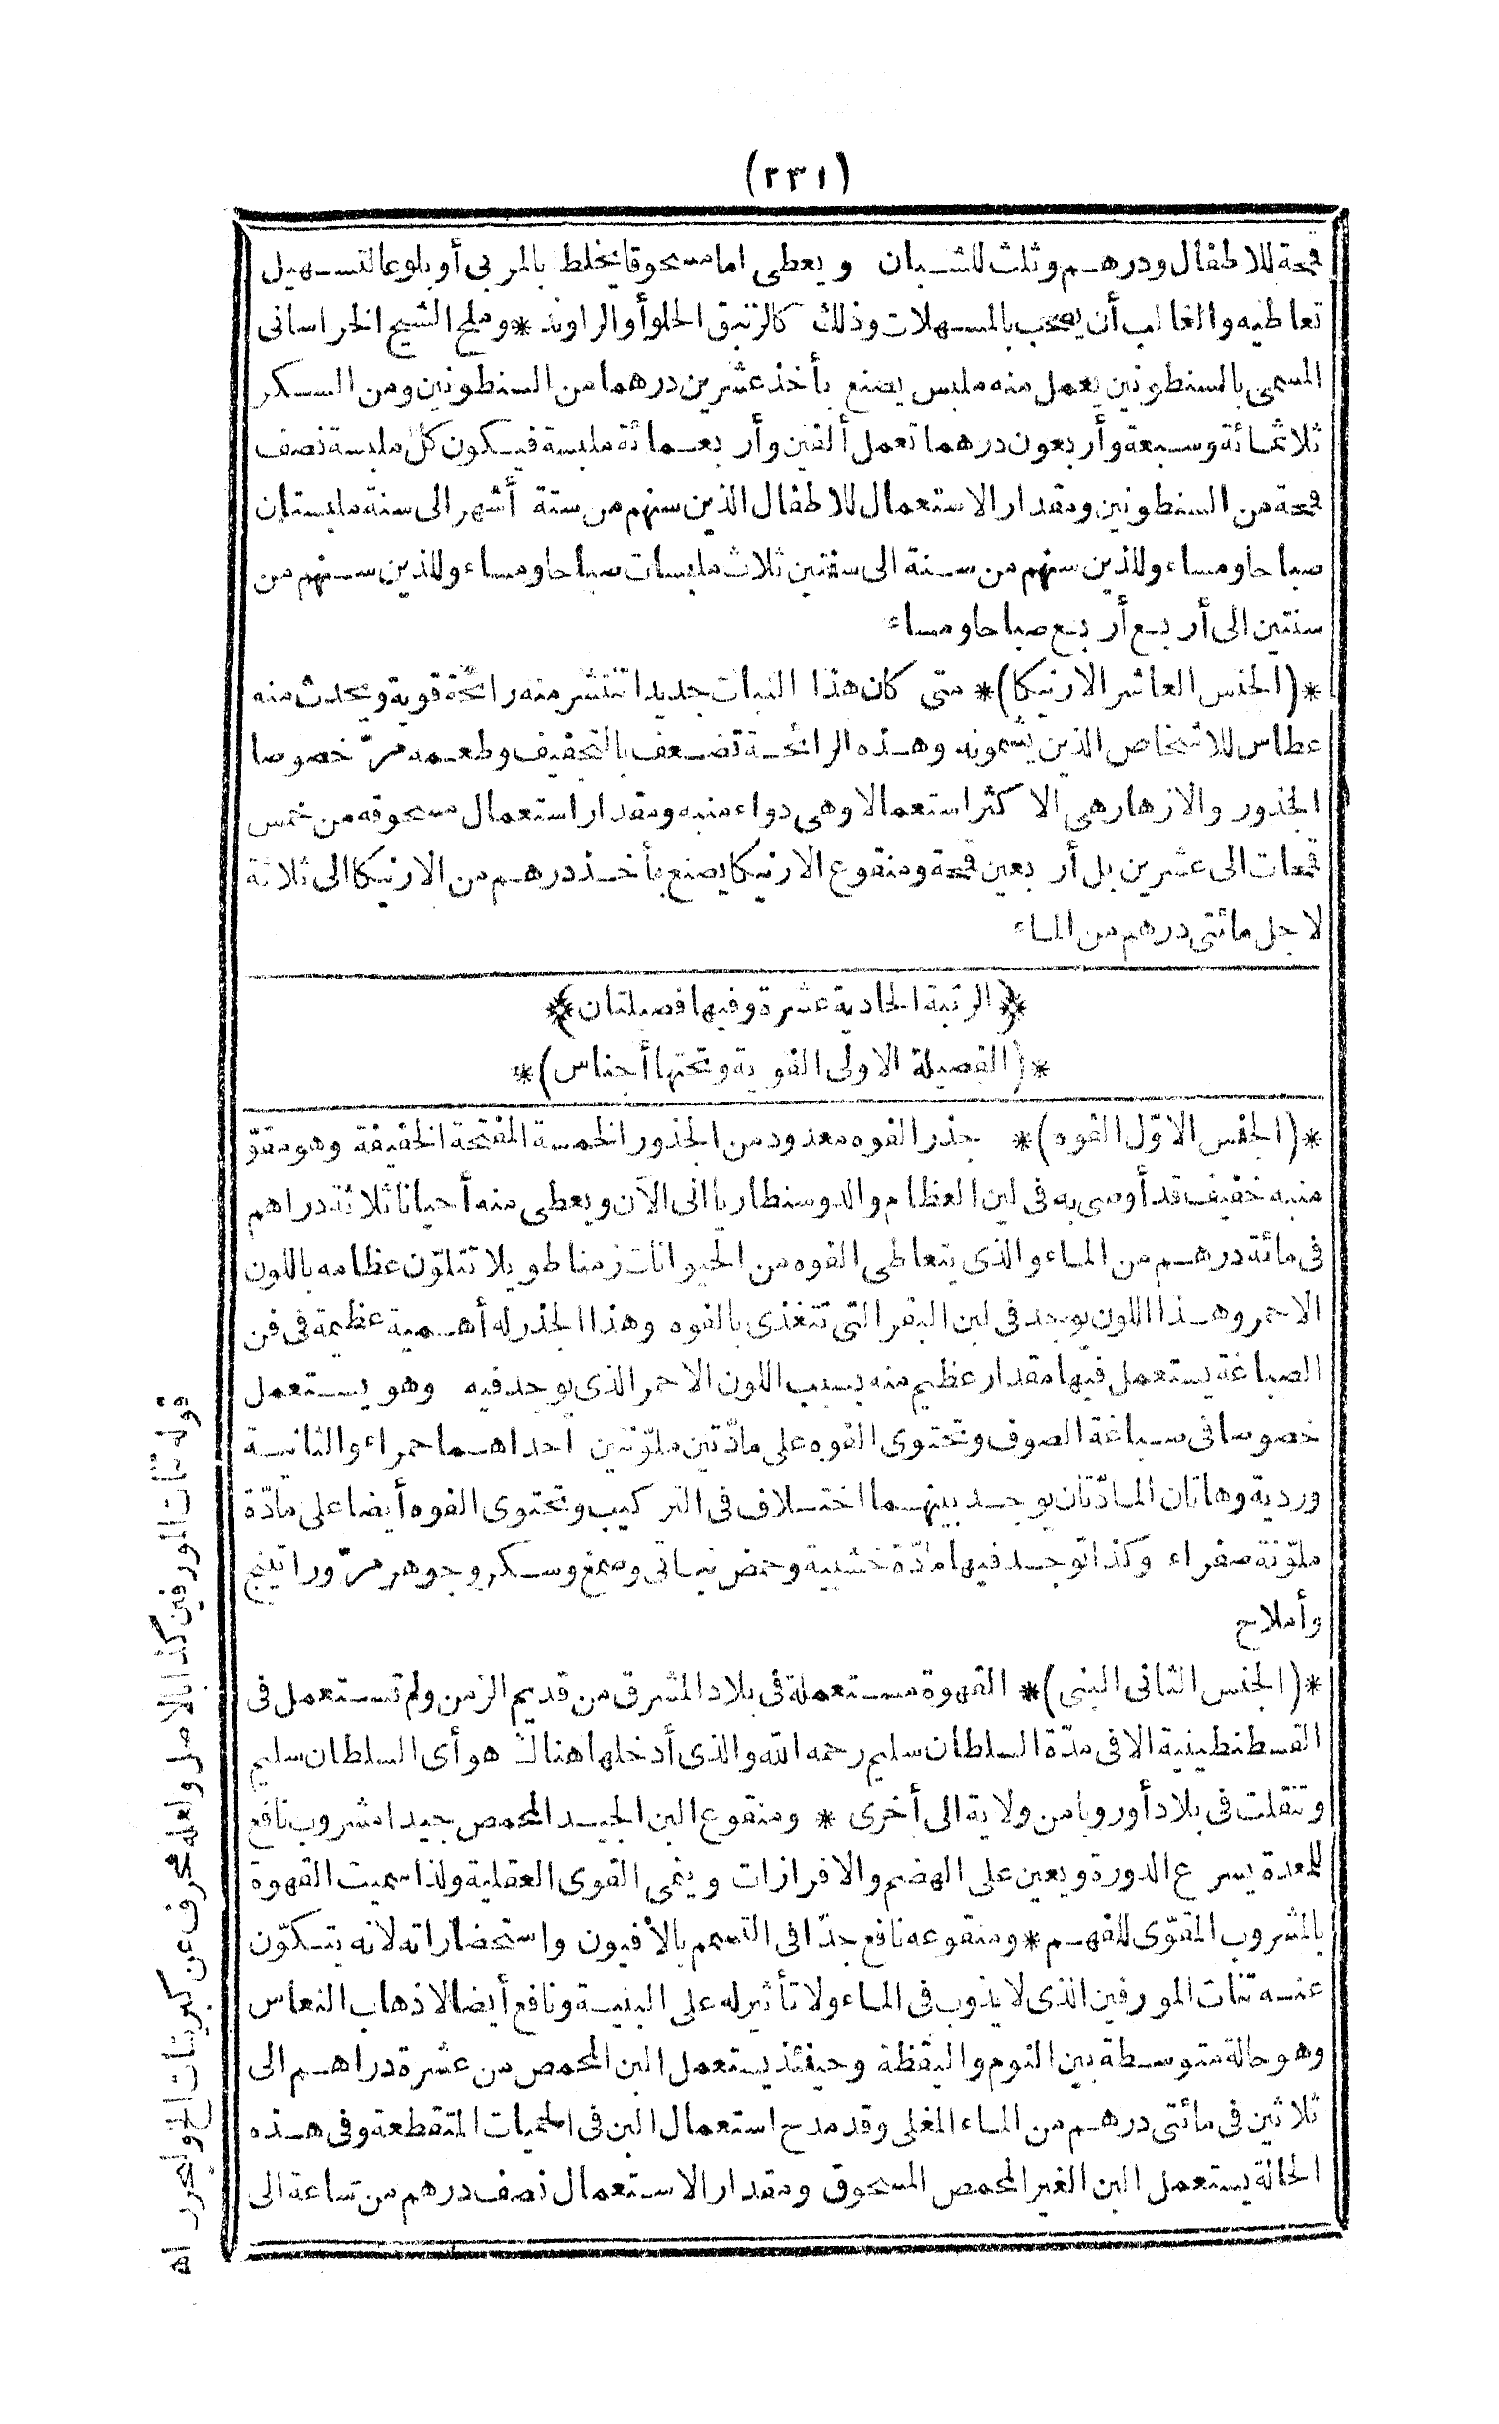 (٢٣١)
قمحة للاطفال ودرهم وثلث للشبان ويعطى اما مسحوقا يخلط بالمربى أو بلوعا لتسهيل
تعاطيه والغالب أن يصحب بالمسهلات وذلك كالزئبق الحلو أو الراوند * وملح الشيح الخراسانى
المسمى بالسنطونين يعمل منه ملبس يصنع بأخذ عشرين درهما من السنطونين ومن السكر
ثلاثمائة وسبعة وأربعون درهما تعمل ألفين وأربعمائة ملبسة فيكون كل ملبسة نصف
قمحة من السنطونين ومقدار الاستعمال للاطفال الذين سنهم من ستة أشهر الى سنة ملبستان
صباحا ومساء وللذين سنهم من سنة الى سنتين ثلاث ملبسات صباحا ومساء وللذين سنهم من
سنتين الى أربع أربع صباحا ومساء
*(الجنس العاشر الارنيكا)* متى كان هذا النبات جديدا تنتشر منه رائحة قوية ويحدث منه
عطاس للاشخاص الذين يشمونه وهذه الرائحة تضعف بالتجفيف وطعمه مرّ خصوصا
الجذور والازهار هى الاكثر استعمالا وهى دواء منبه ومقدار استعمال مسحوقه من خمس
قمحات الى عشرين بل أربعين قمحة ومنقوع الارنيكا يصنع بأخذ درهم من الارنيكا الى ثلاثة
لاجل مائتى درهم من الماء
*(الرتبة الحادية عشرة وفيها فصيلتان)*
*(الفصيلة الاولى الفوية وتحتها أجناس)*
*(الجنس الاوّل الفوه)* جذر الفوه معدود من الجذور الخمسة المفتحة الخفيفة وهو مقوّ
منبه خفيف قد أوصى به فى لين العظام والدوسنطاريا الى الآن ويعطى منه أحيانا ثلاثة دراهم
فى مائة درهم من الماء والذى يتعاطى الفوه من الحيوانات زمنا طويلا تتلوّن عظامه باللون
الاحمر وهذا اللون يوجد فى لبن البقر التى تتغذى بالفوه وهذا الجذر له أهمية عظيمة فى فن
الصباغة يستعمل فيها مقدار عظيم منه بسبب اللون الاحمر الذى يوجد فيه وهو يستعمل
خصوصا فى صباغة الصوف وتحتوى الفوه على مادّتين ملوّنتين احداهما حمراء والثانية
وردية وهاتان المادّتان يوجد بينهما اختلاف فى التركيب وتحتوى الفوه أيضا على مادّة
ملوّنة صفراء وكذا توجد فيها مادّة خشبية وحمض نباتى وصمغ وسكر وجوهر مرّ وراتينج
وأملاح
*(الجنس الثانى البنى)* القهوة مستعملة فى بلاد المشرق من قديم الزمن ولم تستعمل فى
القسطنطينية الا فى مدّة السلطان سليم رحمه الله والذى أدخلها هناك هو أى السلطان سليم
وتنقلت فى بلاد أوروبا من ولاية الى أخرى * ومنقوع البن الجيد المحمص جيدا مشروب نافع
للمعدة يسرع الدورة ويعين على الهضم والافرازات وينمى القوى العقلية ولذا سميت القهوة
بالمشروب المقوّى للفهم * ومنقوعه نافع جدّا فى التسمم بالأفيون واستحضاراته لانه يتكوّن
عنه تنات المورفين الذى لا يذوب فى الماء ولا تأثير له على البنية ونافع أيضا لاذهاب النعاس
وهو حالة متوسطة بين النوم واليقظة وحينئذ يستعمل البن المحمص من عشرة دراهم الى
ثلاثين فى مائتى درهم من الماء المغلى وقد مدح استعمال البن فى الحميات المتقطعة وفى هذه
الحالة يستعمل البن الغير المحمص المسحوق ومقدار الاستعمال نصف درهم من ساعة الى
قوله تنات المورفين كذا بالاصل ولعله محرف عن كبريتات الخ وليحرر اه